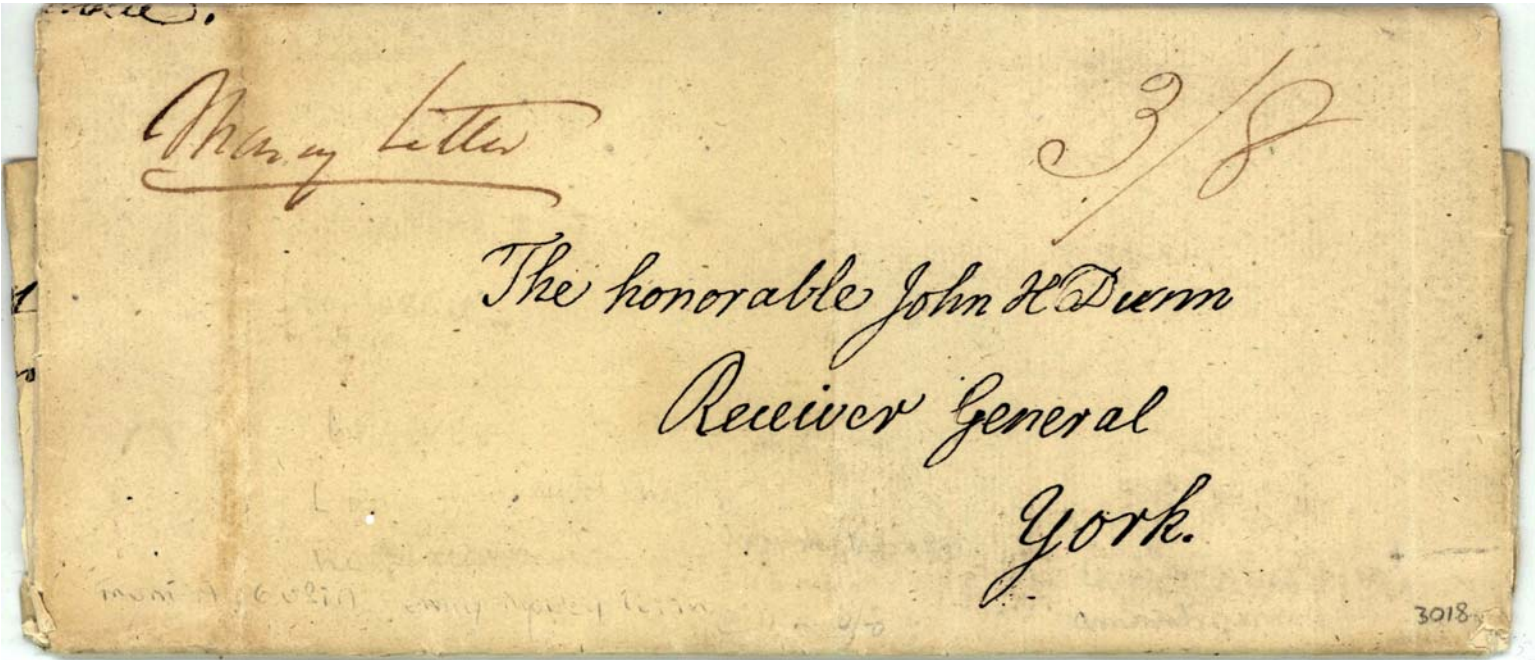 Money Letter
3/8
The honorable John H Dunn
Receiver General
York.
3018